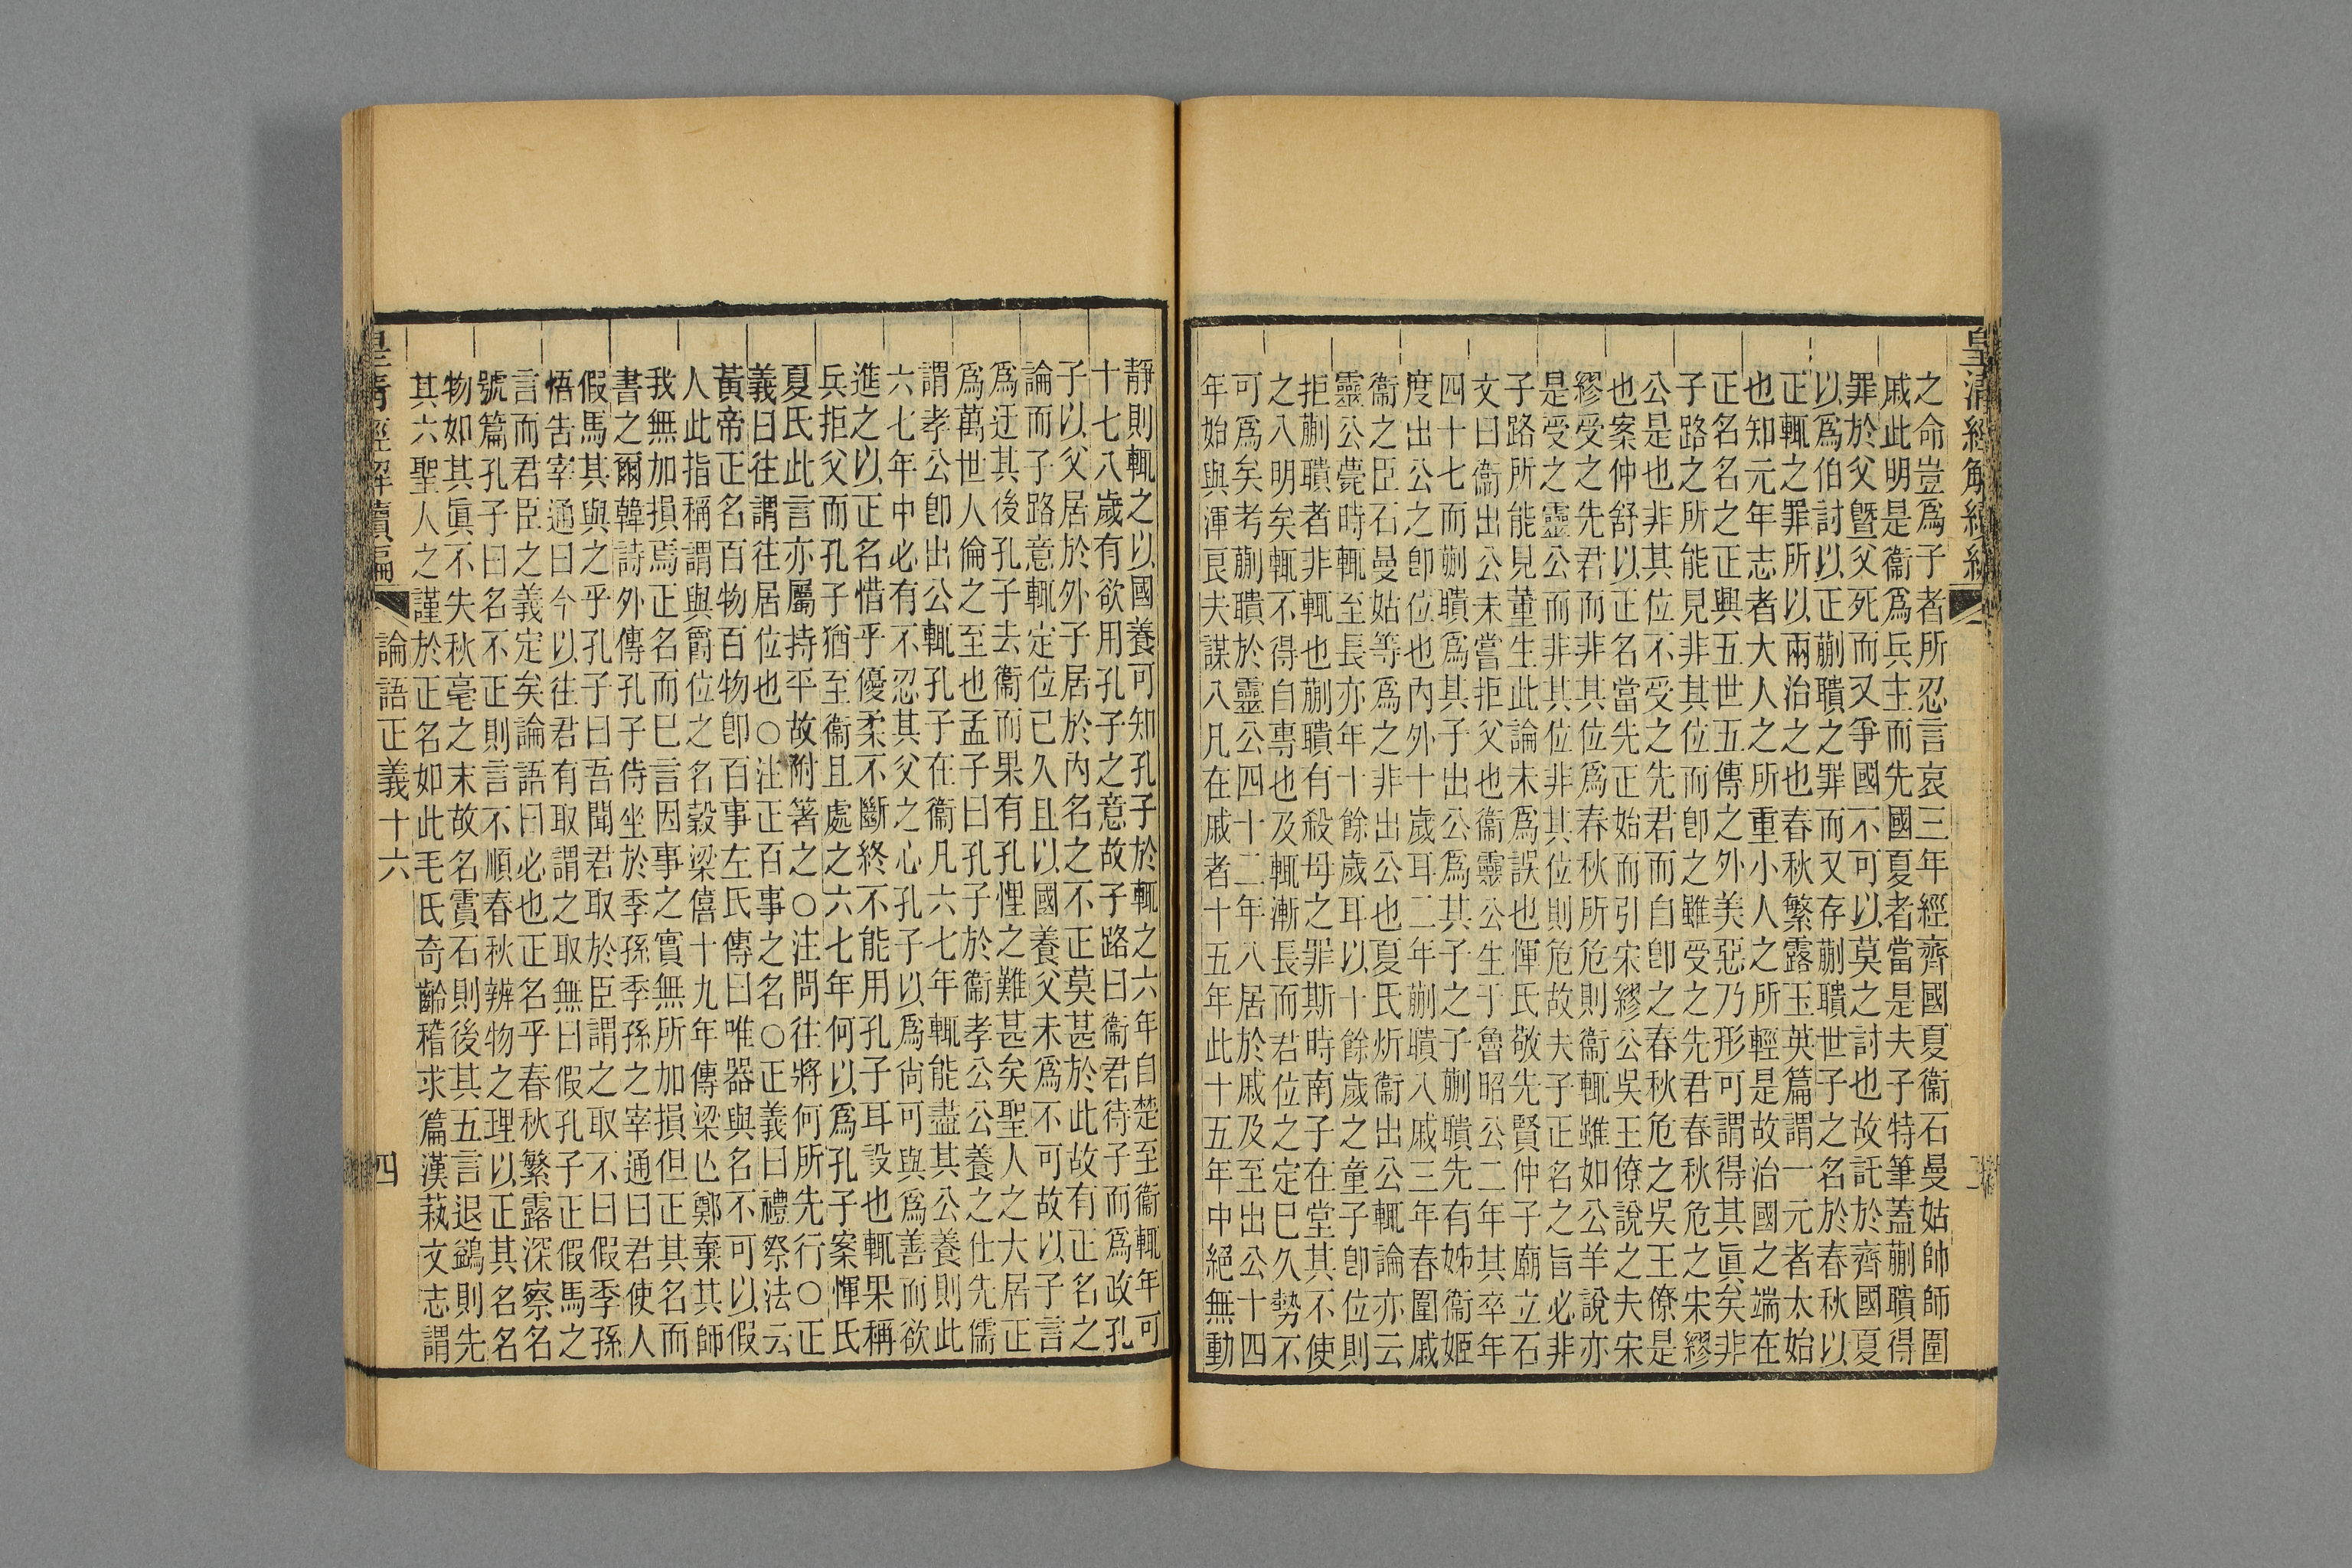 皇清經解續編
之命豈爲子者所忍言哀三年經齊國夏衞石曼姑師師圍
戚此明是衞爲兵主而先國夏者當是夫子特筆蓋蒯聵得
罪於父曁父死而又爭國不可以莫之討也故託於齊國夏
以爲伯討以正蒯聵之罪而又存蒯聵世子之名於春秋以
正輒之罪所以兩治之也春秋繁露玉英篇謂一元者太始
也知元年志者大人之所重小人之所輕是故治國之端在
正名名之正興五世五傳之外美惡乃形可謂得其眞矣非
子路之所能見非其位而卽之雖受之先君春秋危之宋繆
公是也非其位不受之先君而自卽之春秋危之吳王僚是
也案仲舒以正名當先正始而引宋繆公吳王僚說之夫宋
繆受之先君而非其位爲春秋所危則衞輒雖如公羊說亦
是受之靈公而非其位非其位則危故夫子正名之旨必非
子路所能見董生此論未爲誤也惲氏敬先賢仲子廟立石
文曰衞出公未嘗拒父也衞靈公生于魯昭公二年其卒年
四十七而蒯聵爲其子出公爲其子之子蒯聵先有姊衞姬
度出公之卽位也內外十歲耳二年蒯聵入戚三年春圍戚
衞之臣石曼姑等爲之非出公也夏氏炘衞出公輒論亦云
靈公薨時輒至長亦年十餘歲耳以十餘歲之童子卽位則
拒蒯聵者非輒也蒯聵有殺母之罪斯時南子在堂其不使
之入明矣輒不得自專也及輒漸長而君位之定已久勢不
可爲矣考蒯聵於靈公四十二年入居於戚及至出公十四
年始與渾良夫謀入凡在戚者十五年此十五年中絕無動
靜則輒之以國養可知孔子於輒之六年自楚至衞輒年可
十七八歲有欲用孔子之意故子路曰衞君待子而爲政孔
子以父居於外子居於內名之不正莫甚於此故有正名之
論而子路意輒定位已久且以國養父未爲不可故以子言
爲迂其後孔子去衞而果有孔悝之難甚矣聖人之大居正
爲萬世人倫之至也孟子曰孔子於衞孝公公養之仕先儒
謂孝公卽出公輒孔子在衞凡六七年輒能盡其公養則此
六七年中必有不忍其父之心孔子以爲尙可與爲善而欲
進之以正名惜乎優柔不斷終不能用孔子耳設也輒果稱
兵拒父而孔子猶至衞且處之六七年何以爲孔子案惲氏
夏氏此言亦屬持平故附著之○注問往將何所先行○正
義曰往謂往居位也○注正百事之名○正義曰禮祭法云
黃帝正名百物百物卽百事左氏傳曰唯器與名不可以假
人此指稱謂與爵位之名穀梁僖十九年傳梁亾鄭棄其師
我無加損焉正名而已言因事之實無所加損但正其名而
書之爾韓詩外傳孔子侍坐於季孫季孫之宰通曰君使人
假馬其與之乎孔子曰吾聞君取於臣謂之取不曰假季孫
悟告宰通曰今以往君有取謂之取無曰假孔子正假馬之
言而君臣之義定矣論語曰必也正名乎春秋繁露深察名
號篇孔子曰名不正則言不順春秋辨物之理以正其名名
物如其眞不失秋毫之末故名霣石則後其五言退鷁則先
其六聖人之謹於正名如此毛氏奇齡稽求篇漢蓺文志謂
皇淸經解續編　論語正義十六　四